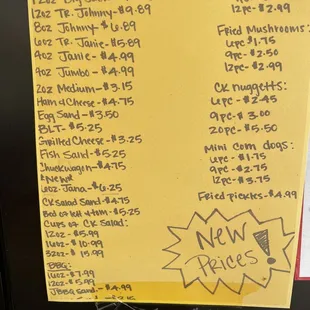 12oz TR. Johnny-$9.89
8oz Johnny-$6.89
6oz TR. Janie-$5.89
4oz Janie-$4.99
9oz Jumbo-$4.99
2oz Medium-$3.15
Ham & Cheese-$4.75
Egg Sand-$3.50
BLT-$5.25
Grilled Cheese-$3.25
Fish Sand-$5.25
Chuckwagon-$4.75
*New*
6oz Jana-$6.25
CK Salad Sand-$4.75
Bed of let & tom-$5.25
Cups of CK Salad:
12oz-$5.99
16oz-$10.99
32oz-$15.99
BBQ:
16oz-$7.99
12oz-$5.99
JBBQ Sand-$4.99
12pc-$2.99
Fried Mushrooms:
6pc $1.75
9pc-$2.50
12pc-$2.99
CK nuggetts:
6pc-$2.45
9pc-$3.00
20pc-$5.50
Mini Corn dogs:
6pc-$1.75
9pc-$2.75
12pc-$3.75
Fried pickles-$4.99
New
Prices!